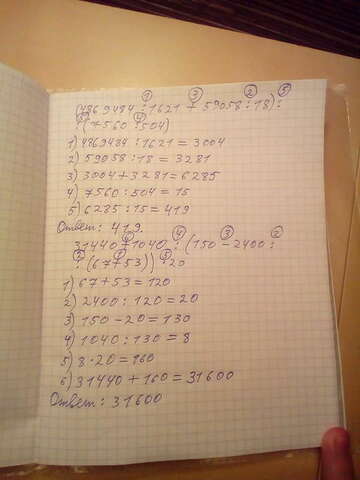 ① ③ ② ⑤
(4869484 : 1621 + 59058 : 18) :
④
: (7560 : 504)
1) 4869484 : 1621 = 3004
2) 59058 : 18 = 3281
3) 3004 + 3281 = 6285
4) 7560 : 504 = 15
5) 6285 : 15 = 419
Ответ: 419.
⑥ ④ ③ ②
31440 + 1040 : (150 - 2400 :
① ⑤
: (67 + 53)) · 20
1) 67 + 53 = 120
2) 2400 : 120 = 20
3) 150 - 20 = 130
4) 1040 : 130 = 8
5) 8 · 20 = 160
6) 31440 + 160 = 31600
Ответ: 31600